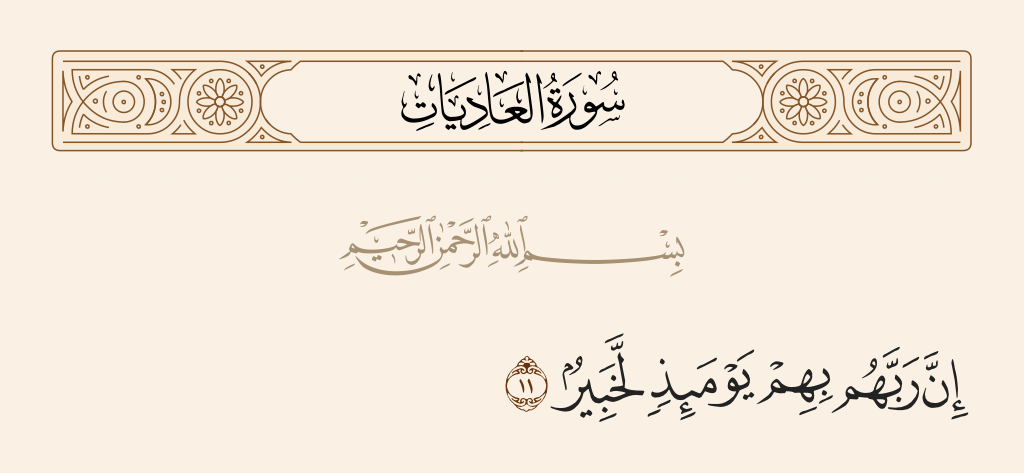 سُورَةُ العَادِيَاتِ
بِسْمِ ٱللَّهِ ٱلرَّحْمَٰنِ ٱلرَّحِيمِ
إِنَّ رَبَّهُم بِهِمْ يَوْمَئِذٍ لَّخَبِيرٌۢ ١١